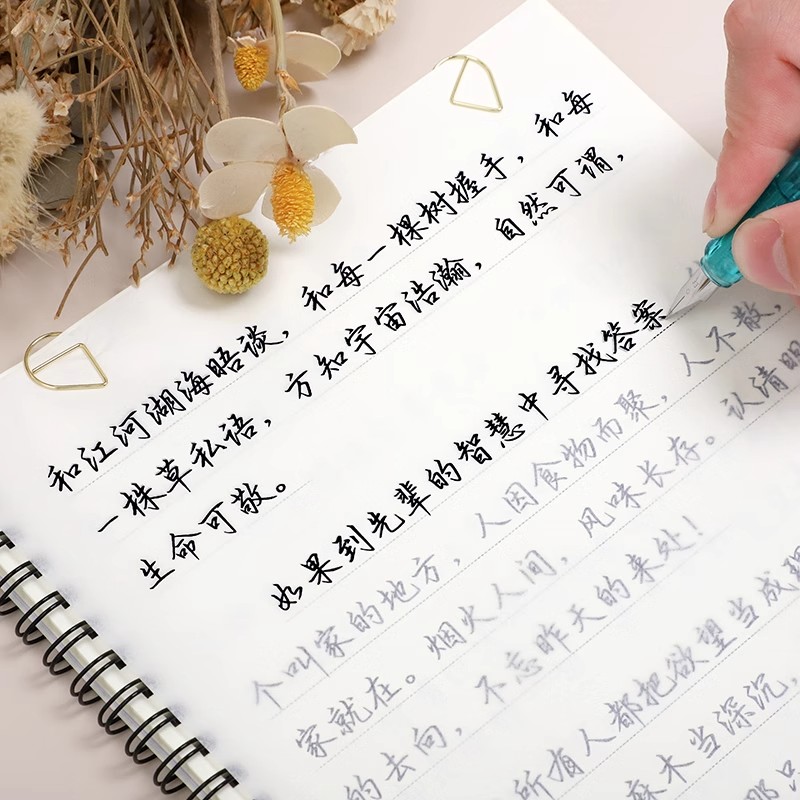 和江河湖海晤谈，和每一棵树握手，和每
一株草私语，方知宇宙浩瀚，自然可谓，
生命可敬。
如果到先辈的智慧中寻找答案
个叫家的地方，人因食物而聚，人不散，
家就在。烟火人间，风味长存。认清明
的去向，不忘昨天的来处！
所有人都把欲望当成理
麻木当深沉，
那只